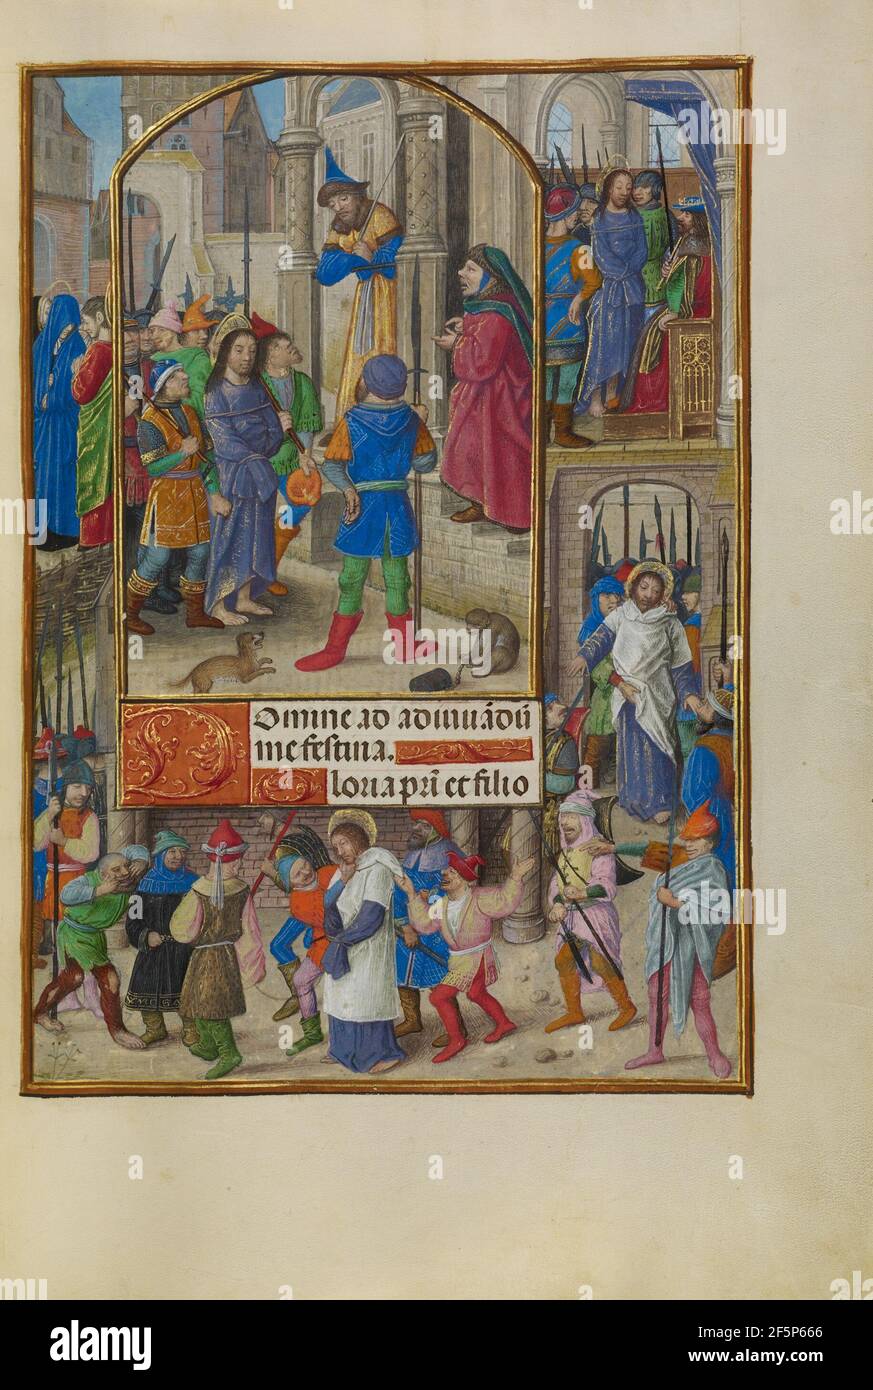 Domine ad adiuuādū
me festina.
Gloria pri et filio
alamy
Image ID: 2F5P666
www.alamy.com